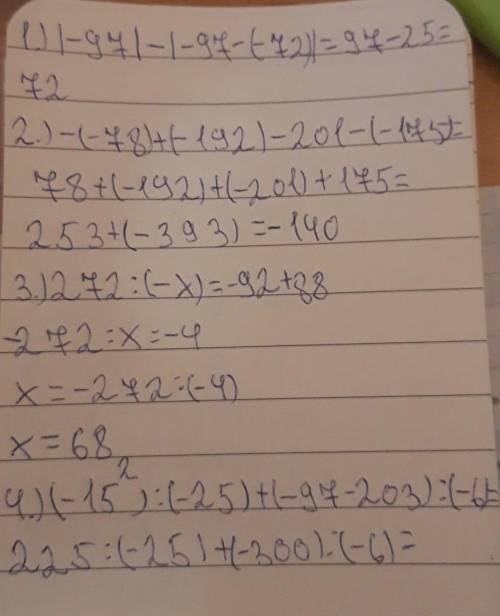 1.) |-97|-|-97-(-72)|=97-25=
72
2.) -(-78)+(-192)-201-(-175)=
78+(-192)+(-201)+175=
253+(-393)=-140
3.) 272:(-x)=-92+88
-272:x=-4
x=-272:(-4)
x=68
4.) (-15²):(-25)+(-97-203):(-6)=
225:(-25)+(-300):(-6)=